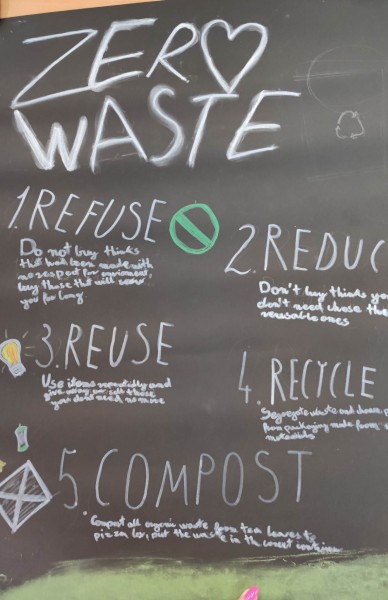 ZERO
WASTE
1. REFUSE
Do not buy thinks
that had been made with
no respect for enviroment,
buy those that will serve
you for long
2. REDUC
Don't buy thinks you
don't need chose the
reusable ones
3. REUSE
Use items repeatedly and
give away or sell those
you dont need no more
4. RECYCLE
Segregate waste and
from packaging made from
materials
5. COMPOST
Compost all organic waste from tea leaves to
pizza box, put the waste in the correct container